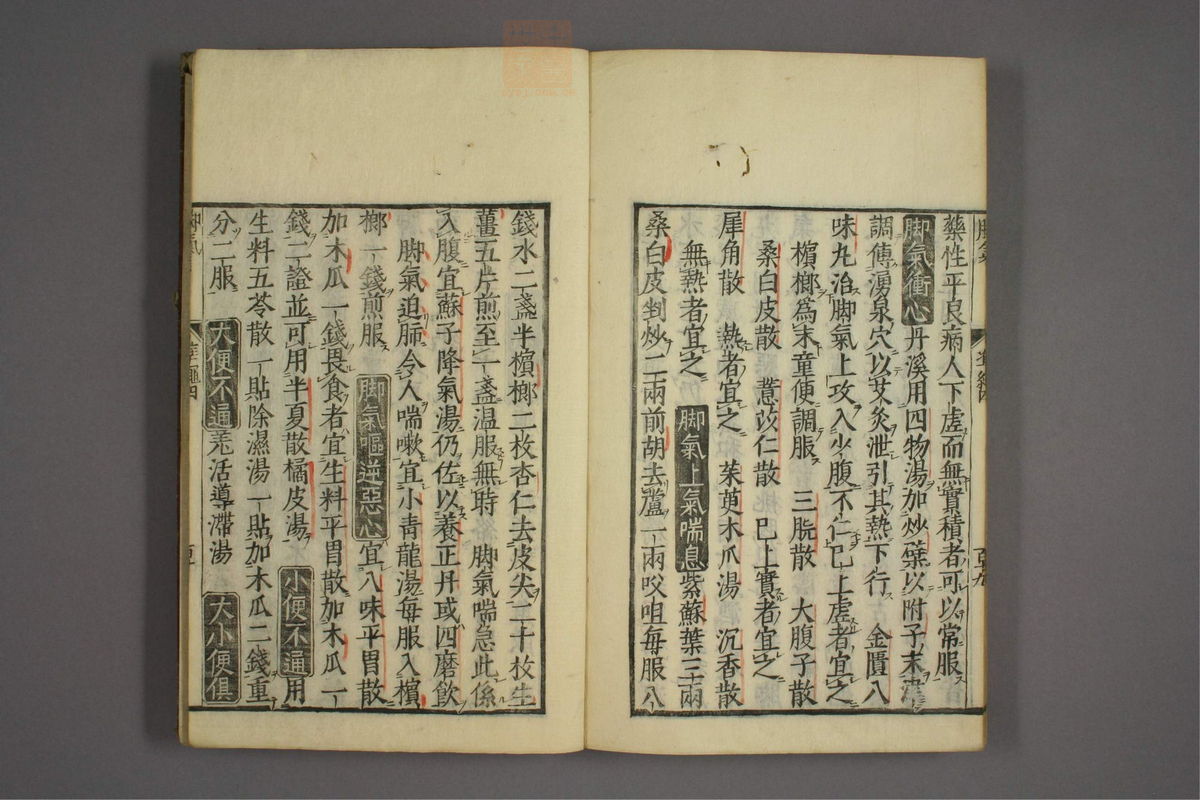 藥性平良病人下虛而無實積者可以常服
脚氣衝心 丹溪用四物湯加炒蘗以附子末
調傅湧泉穴以艾灸泄引其熱下行 金匱八
味丸治脚氣上攻入少腹不仁巳上虛者宜之
檳榔爲末童便調服 三脘散 大腹子散
桑白皮散 薏苡仁散 巳上實者宜之
犀角散 熱者宜之 茱萸木瓜湯 沉香散
無熱者宜之 脚氣上氣喘息 紫蘇葉三兩
桑白皮剉炒二兩前胡去蘆一兩㕮咀每服八
錢水二盞半檳榔二枚杏仁去皮尖二十枚生
薑五片煎至一盞温服無時 脚氣喘急此係
入腹宜蘇子降氣湯仍佐以養正丹或四磨飮
脚氣迫肺令人喘嗽宜小青龍湯每服入檳
榔一錢煎服 脚氣嘔逆惡心 宜八味平胃散
加木瓜一錢畏食者宜生料平胃散加木瓜一
錢二證並可用半夏散橘皮湯 小便不通 用
生料五苓散一貼除濕湯一貼加木瓜二錢重
分二服 大便不通 羗活導滯湯 大小便俱